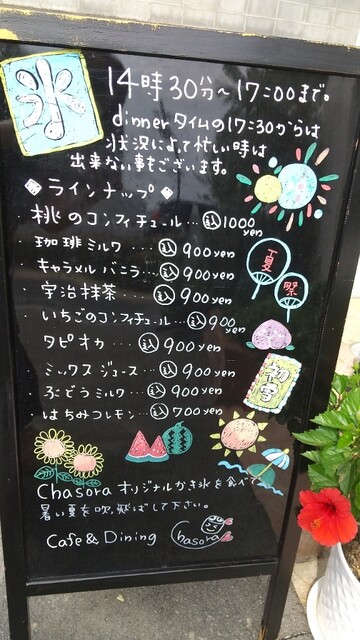 氷
14時30分～17:00まで。
dinnerタイムの17:30からは
状況によって忙しい時は
出来ない事もございます。
◆ラインナップ◆
・桃のコンフィチュール…込1000yen
・珈琲ミルク…込900yen
・キャラメルバニラ…込900yen
・宇治抹茶…込900yen
・いちごのコンフィチュール…込900yen
・タピオカ…込900yen
・ミックスジュース…込900yen
・ぶどうミルク…込900yen
・はちみつレモン…込700yen
夏
祭
初雪
Chasoraオリジナルかき氷を食べて
暑い夏を吹飛ばして下さい。
Cafe & Dining chasora